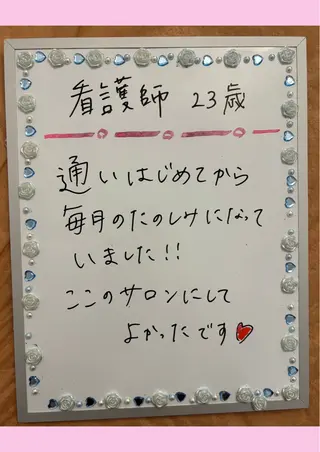 看護師 23歳
通いはじめてから
毎月のたのしみになって
いました!!
ここのサロンにして
よかったです♥